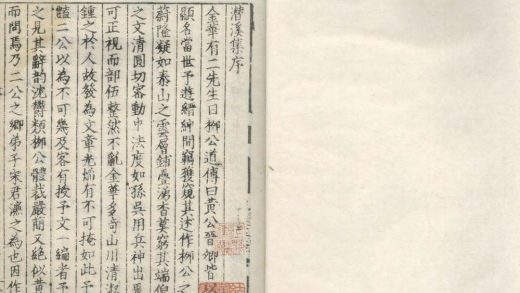 潛溪集序
金華有二先生曰柳公道傳曰黃公晉卿皆以
顯名當世予遊縉紳間竊獲窺其述作柳公之
蔚隆疑如泰山之雲層鋪疊湧杳莫窮其端倪
之文清圓切密動中法度如孫吳用兵神出鬼
可正視而部伍整然不亂金華多奇山川清淑
鍾之於人故發為文章光焰有不可掩如此予
豔二公以為不可幾及客有授予文一編者予
之見其辭韵沈鬱類柳公體裁嚴簡又絕似黃
而問焉乃二公之鄉弟子宋君濂之為也因作